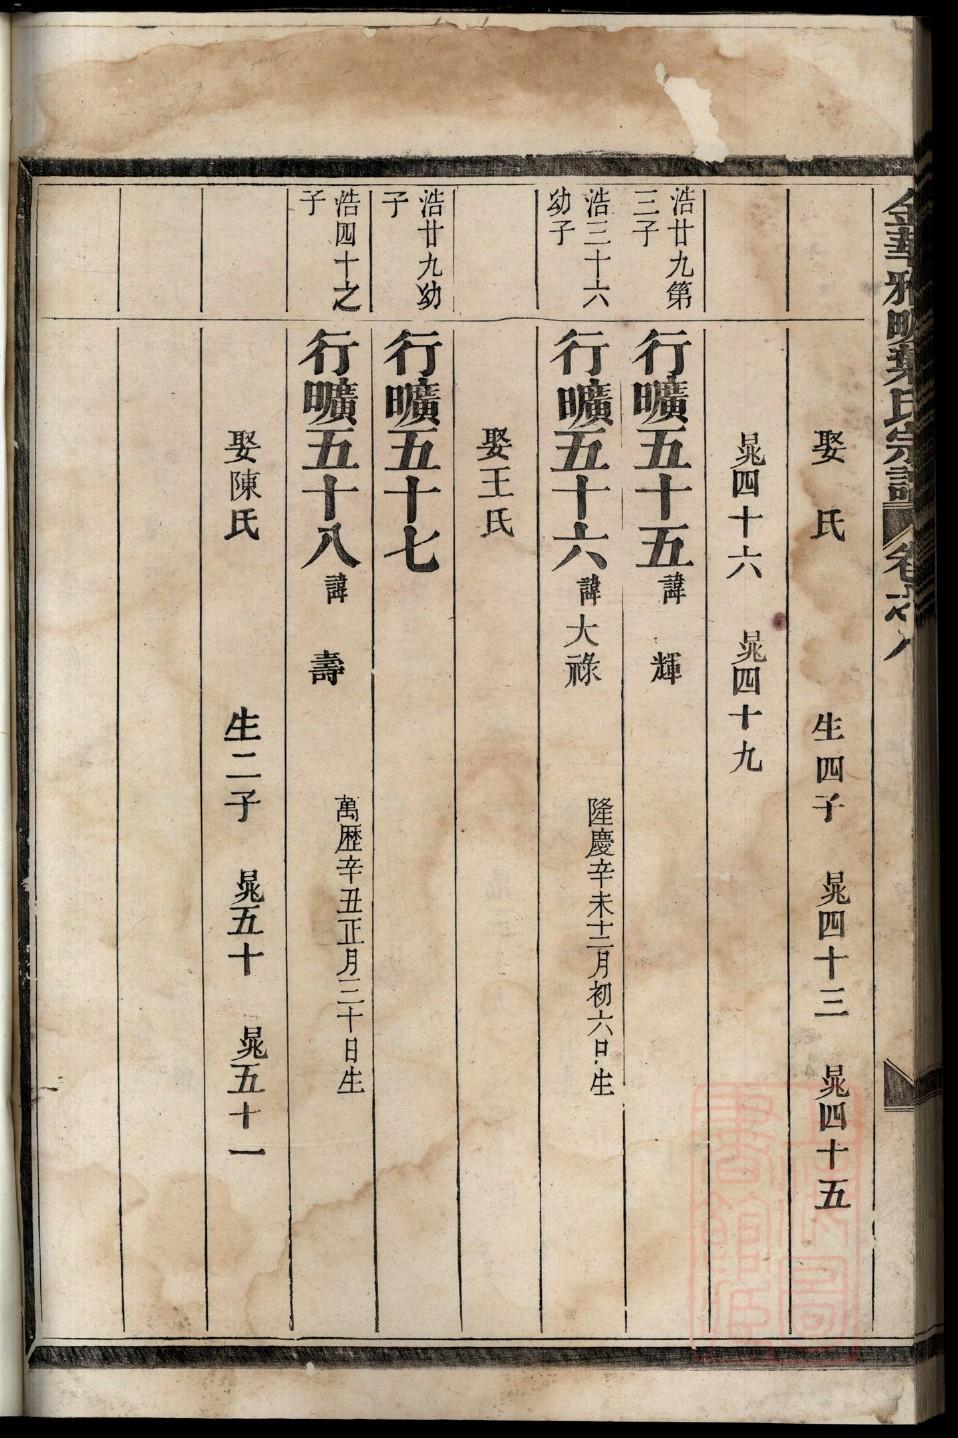 金華雅畈葉氏宗譜 卷之八
娶 氏 生四子 晁四十三 晁四十五
晁四十六 晁四十九
浩廿九第三子 行曠五十五 諱 輝
浩三十六幼子 行曠五十六 諱大祿 隆慶辛未十二月初六日生
娶王氏
浩廿九幼子 行曠五十七
浩四十之子 行曠五十八 諱 壽 萬歷辛丑正月三十日生
娶陳氏 生二子 晁五十 晁五十一